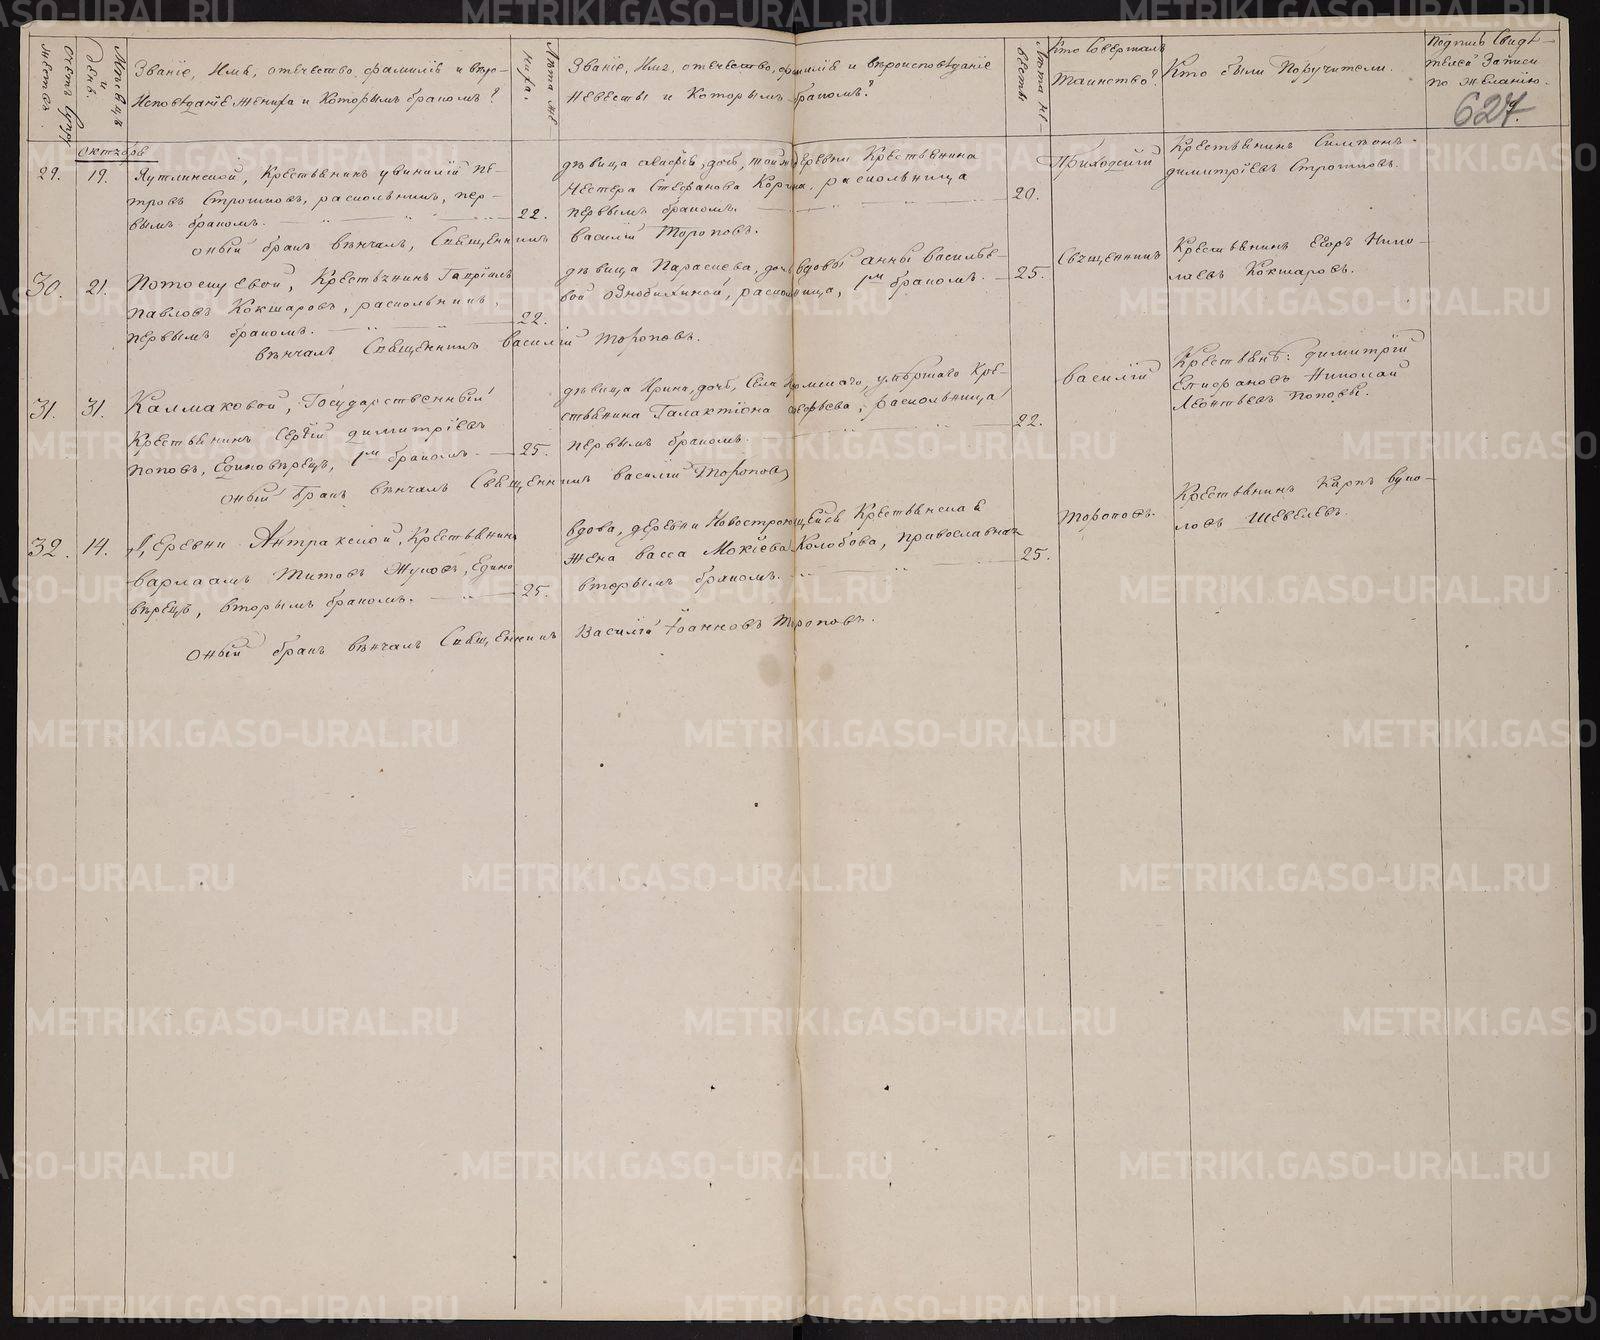 Счетъ супру
жествъ.
Мѣсяцъ
и
день.
Званіе, Имя, отечество, фамилія и вѣро-
исповѣданіе жениха и Которымъ бракомъ?
Лѣта же
ниха.
Званіе, Имя, отечество, фамилія и вѣроисповѣданіе
невѣсты и Которымъ бракомъ?
Лѣта не-
вѣсты
Кто Совершалъ
Таинство?
Кто были Поручители.
Подпись Свидѣ-
телей Записи
по желанію.
627
октябрь
29. 19.
Яутлинской, Крестьянинъ Пе-
тровъ Строшковъ, раскольникъ, пер-
вымъ бракомъ. 22.
дѣвица дочь, той же деревни Крестьянина
Нестера Стефанова раскольница
первымъ бракомъ. 20.
оный бракъ вѣнчалъ, Священникъ Василій Тороповъ.
Приходскій
Крестьянинъ Симеонъ
димитріевъ Строшковъ.
30. 21.
Крестьянинъ Гавріилъ
Павловъ Кокшаровъ, раскольникъ,
первымъ бракомъ. 22.
дѣвица Параскева, дочь вдовы анны василье-
вой Ознобихиной, раскольница, 1мъ бракомъ. 25.
вѣнчалъ Священникъ Василій Тороповъ.
Священникъ
Крестьянинъ Егоръ Нико-
лаевъ Кокшаровъ.
31. 31.
Калмаковой, Государственный
Крестьянинъ Сергій димитріевъ
Поповъ, Единовѣрецъ, 1мъ бракомъ. 25.
дѣвица Ирина, дочь, Села умершаго Кре-
стьянина Галактіона раскольница
первымъ бракомъ. 22.
оный бракъ вѣнчалъ Священникъ василій Тороповъ
Василій
Крестьянѣ: димитрій
Епифановъ Николай
Леонтьевъ Поповы.
32. 14.
Деревни Антракской, Крестьянинъ
варлаамъ Титовъ Жуковъ, Едино
вѣрецъ, вторымъ бракомъ. 25.
вдова, деревни Крестьянская
Жена васса Мокіева Колобова, православная
вторымъ бракомъ. 25.
оный бракъ вѣнчалъ Священникъ Василій Іоанновъ Тороповъ.
Тороповъ.
Крестьянинъ Карпъ вуко-
ловъ Шевелевъ.
METRIKI.GASO-URAL.RU